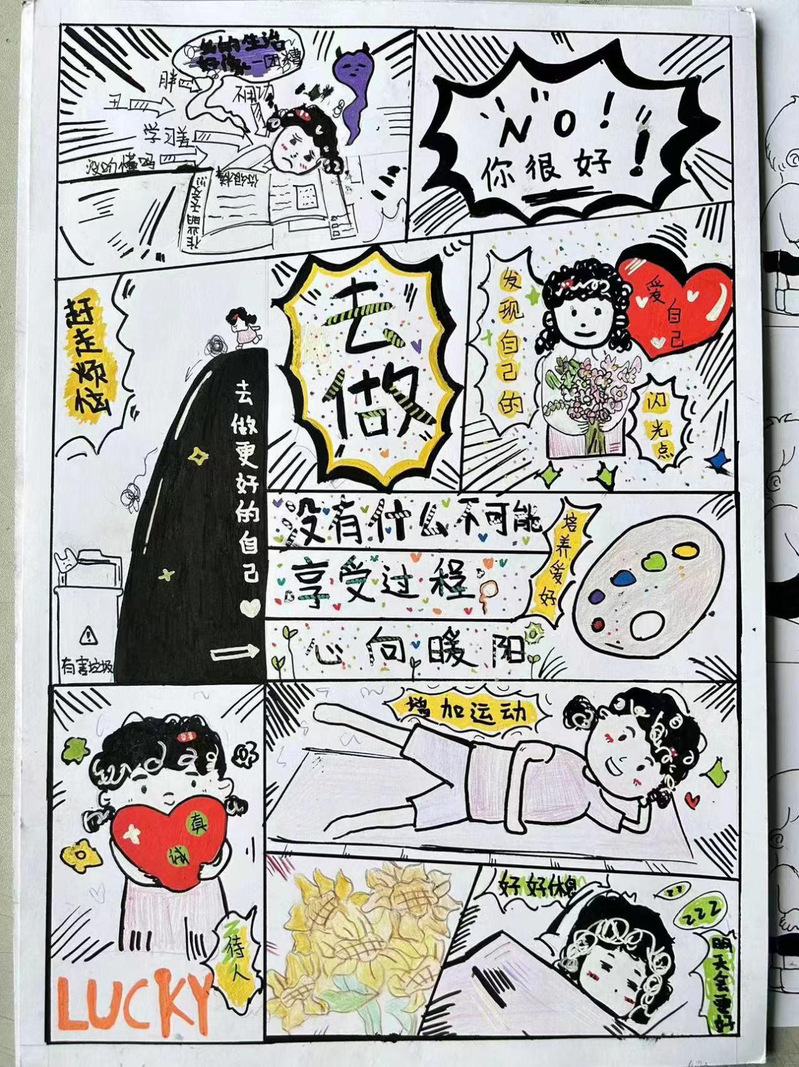 我的生活
好像一团糟
胖
丑
学习差
没听懂吗
NO!
你很好!
赶走烦恼
去做更好的自己
有害垃圾
去做
发现自己的
闪光点
爱自己
没有什么不可能
享受过程
心向暖阳
培养爱好
真诚
待人
LUCKY
增加运动
好好休息
zz
zzz
明天会更好